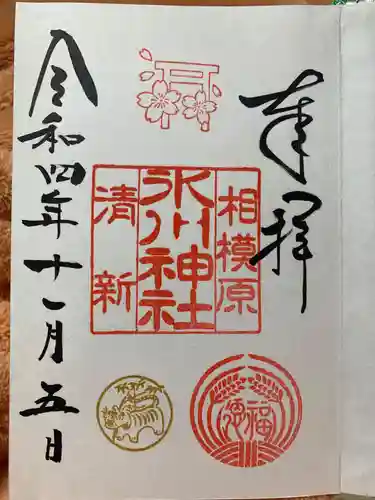 奉拝
相模原
氷川神社
清新
福
徳
令和四年十一月五日